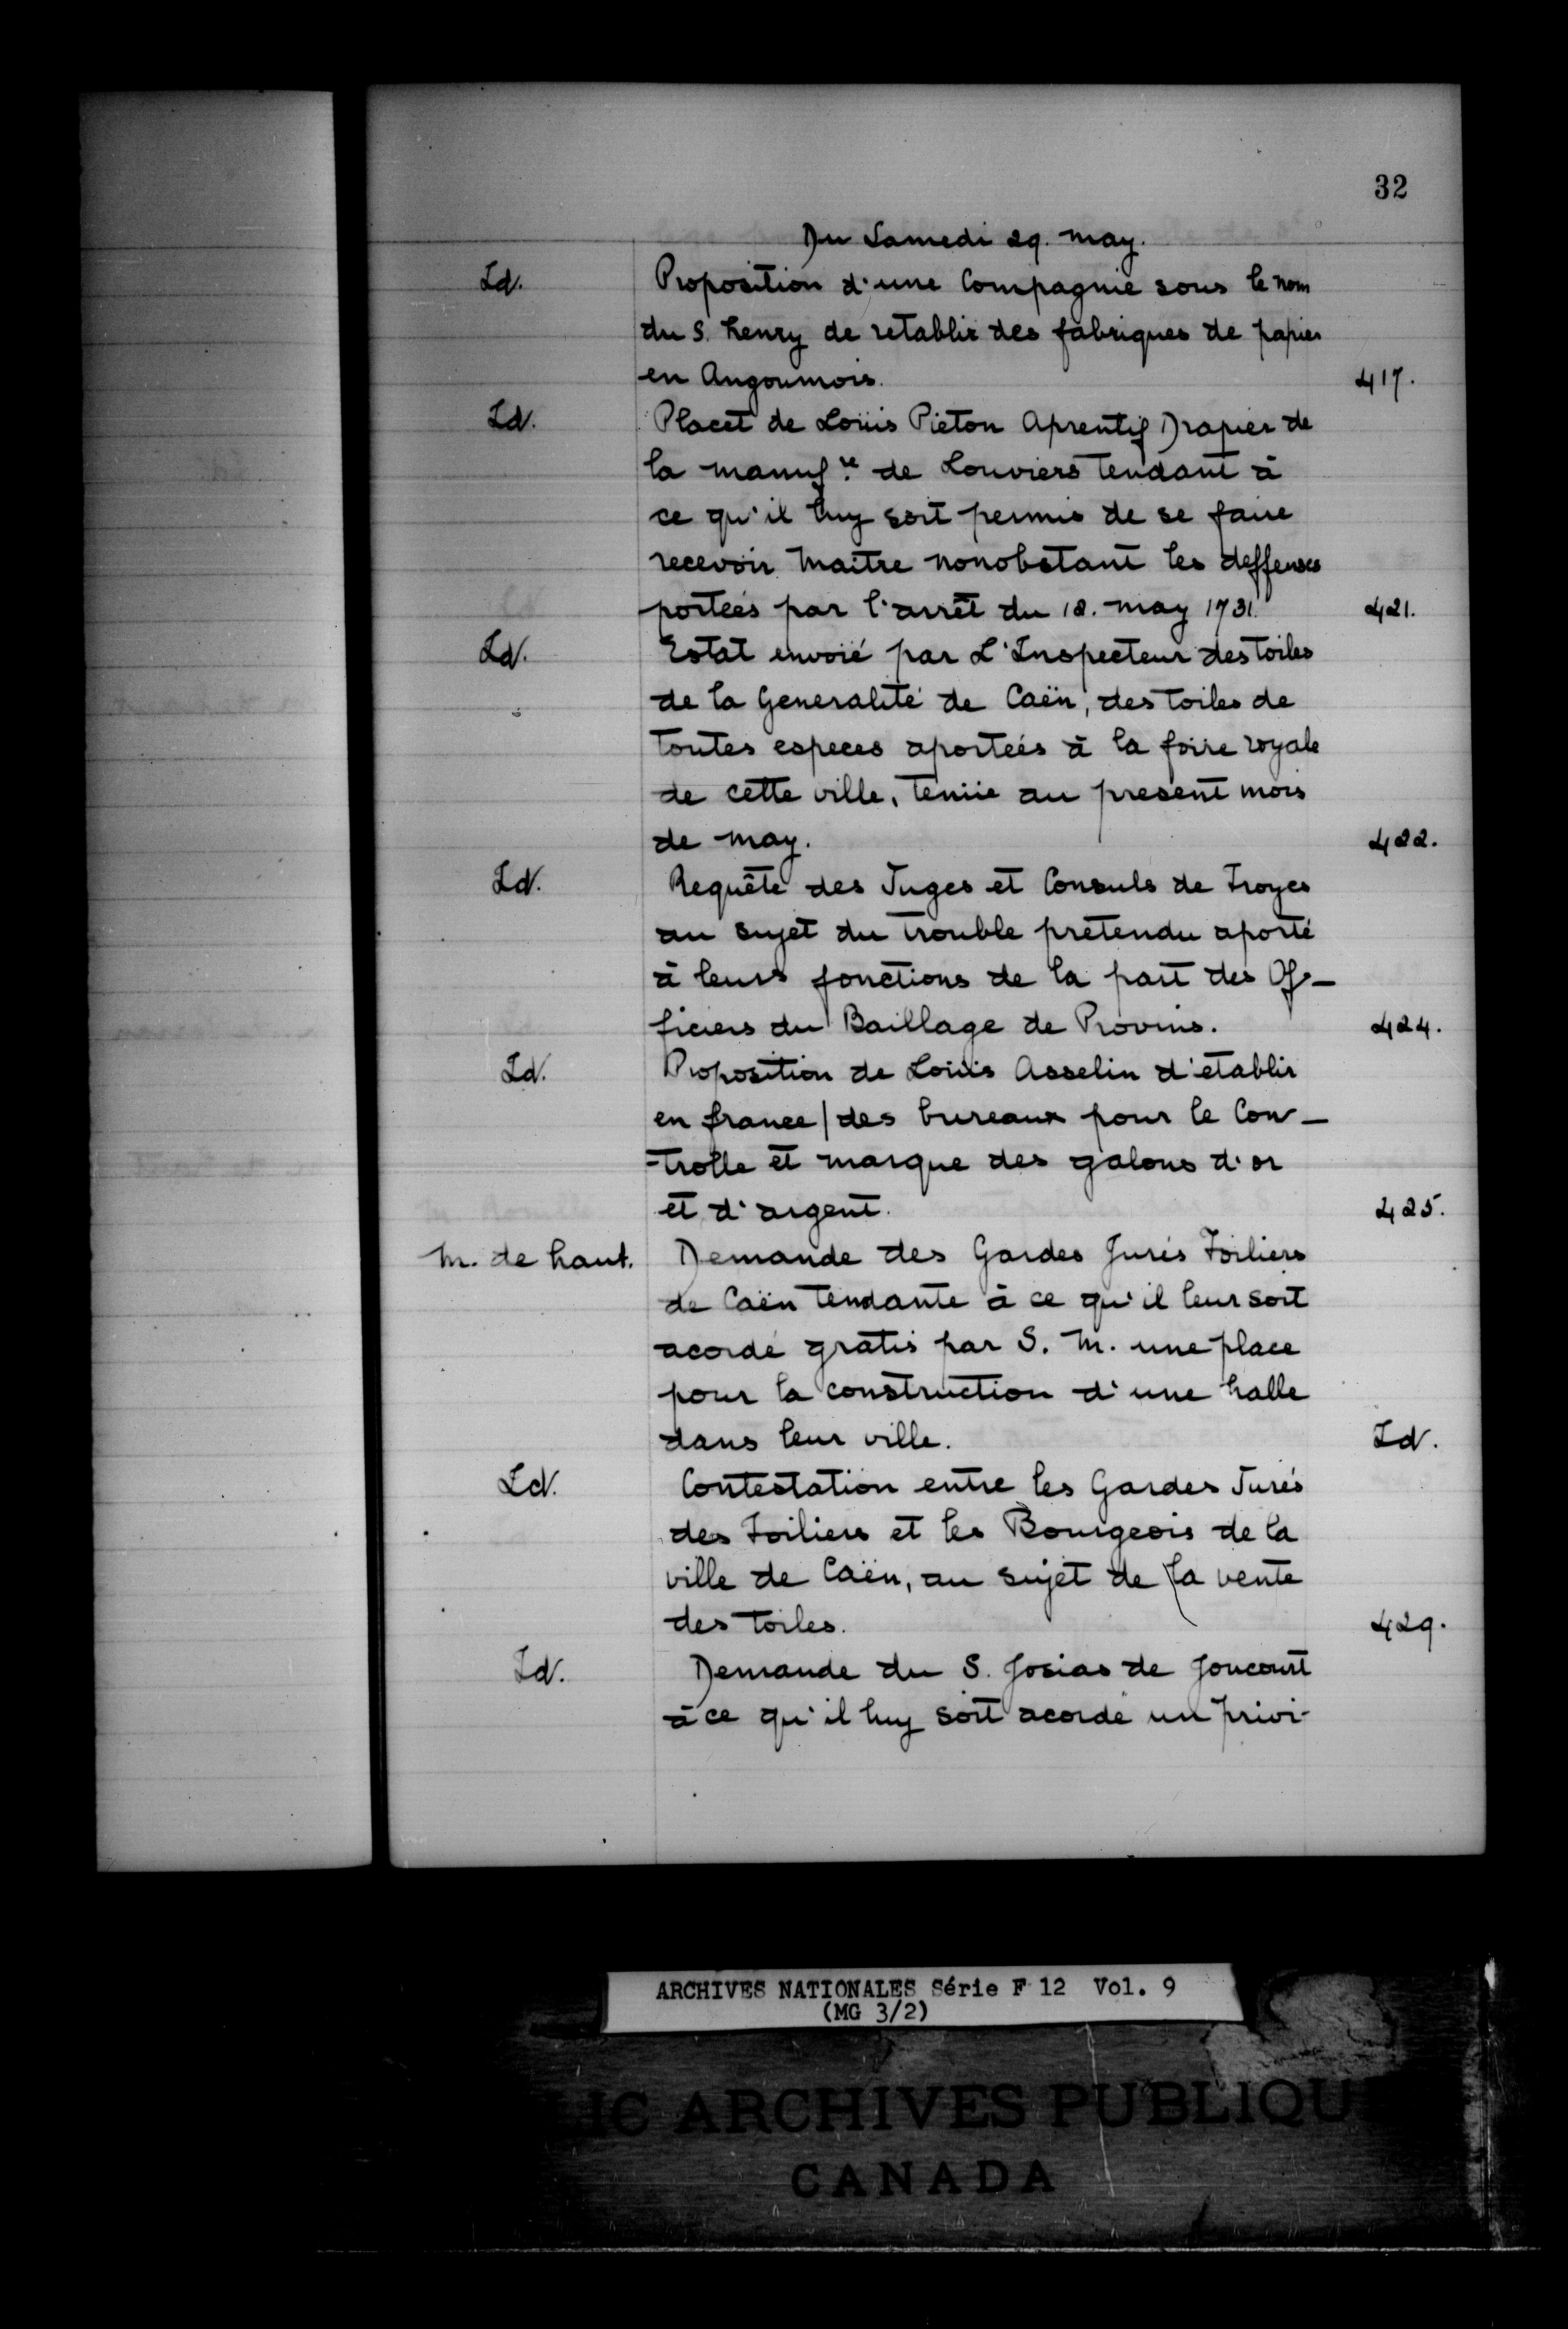 32
Du Samedi 29. may.
Id. Proposition d'une Compagnie sous le nom
du S. henry de retablir des fabriques de papier
en Angoumois. 417.
Id. Placet de Loüis Pieton Aprentif Drapier de
la manuf.re de Louviers tendant à
ce qu'il luy soit permis de se faire
recevoir maitre nonobstant les deffenses
porteés par l'arrêt du 18. may 1731. 421.
Id. Estat envoïé par L'Inspecteur des toiles
de la Generalité de Caën, des toiles de
toutes especes aporteés à la foire royale
de cette ville, tenüe au present mois
de may. 422.
Id. Requête des Juges et Consuls de Troyes
au sujet du trouble prétendu aporté
à leurs fonctions de la part des Of-
ficiers du Baillage de Provins. 424.
Id. Proposition de Loüis Asselin d'établir
en france/des bureaux pour le Con-
-trolle et marque des galons d'or
et d'argent. 425.
M. de haut. Demande des Gardes Jurés Toiliers
de Caën tendante à ce qu'il leur soit
acordé gratis par S. M. une place
pour la construction d'une halle
dans leur ville. Id.
Id. Contestation entre les Gardes Jurés
des Toiliers et les Bourgeois de la
ville de Caën, au sujet de la vente
des toiles. 429.
Id. Demande du S. Josias de Joncourt
à ce qu'il luy soit acordé un privi-
ARCHIVES NATIONALES Série F 12 Vol. 9
(MG 3/2)
IC ARCHIVES PUBLIQU
CANADA